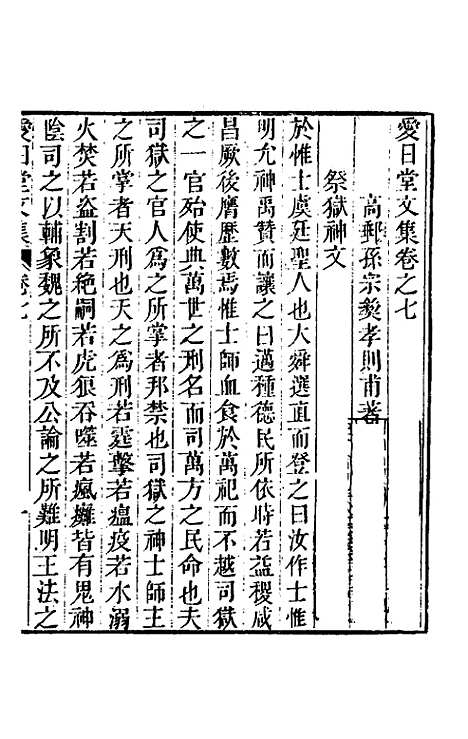 愛日堂文集卷之七
高郵孫宗彝孝則甫著
祭獄神文
於惟士虞廷聖人也大舜選直而登之曰汝作士惟
明允神禹贊而讓之曰邁種德民所依時若益稷咸
昌厥後膺歷數焉惟士師血食於萬祀而不越司獄
之一官殆使典萬世之刑名而司萬方之民命也夫
司獄之官人為之所掌者邦禁也司獄之神士師主
之所掌者天刑也天之為刑若霆擊若瘟疫若水溺
火焚若盜割若絶嗣若虎狼吞噬若瘋癱皆有鬼神
陰司之以輔象魏之所不及公論之所難明王法之
愛日堂文集 卷七 一